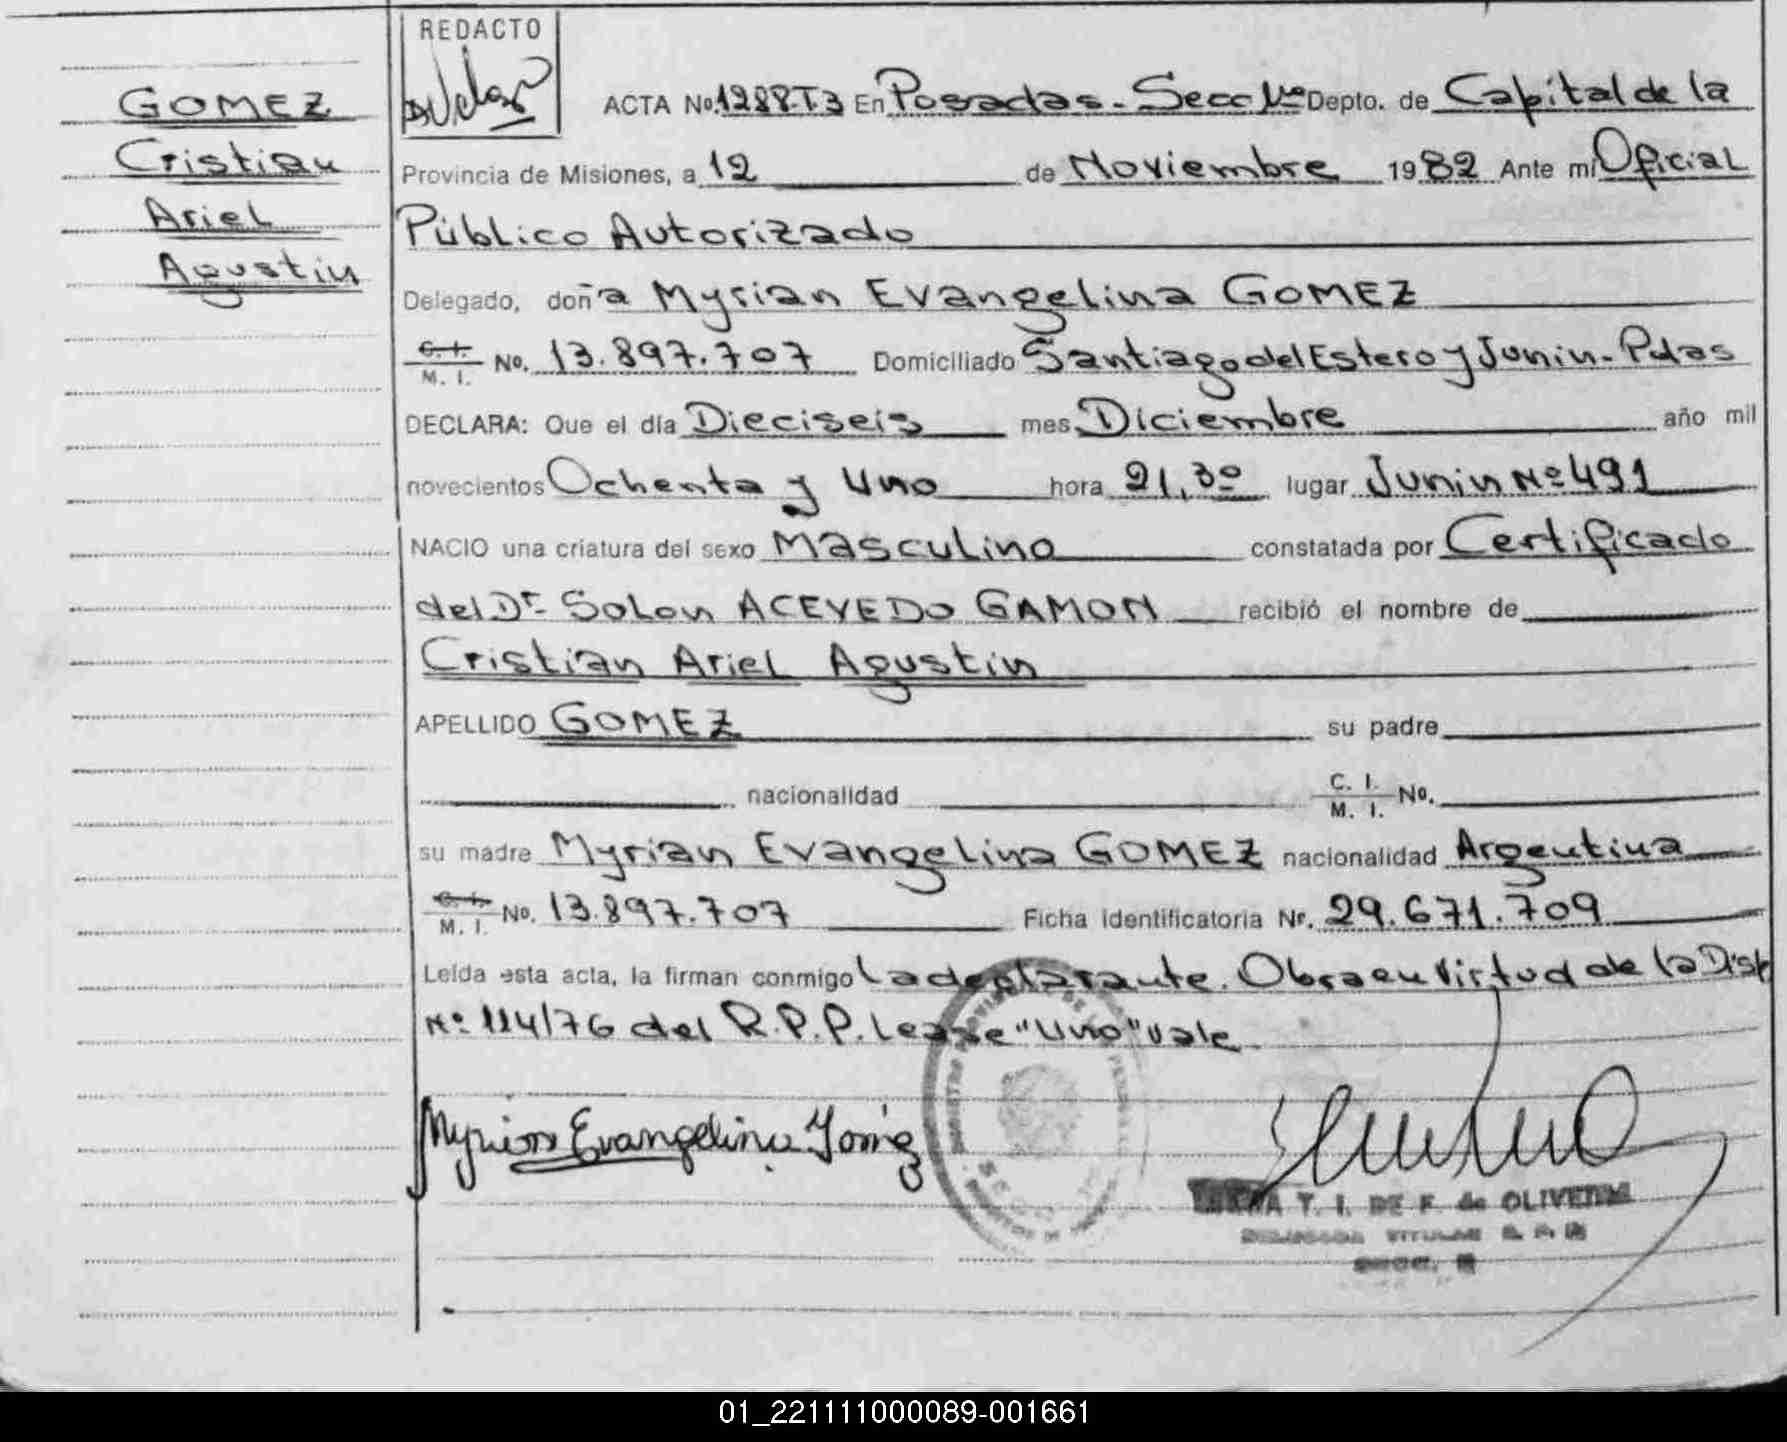 GOMEZ
Cristian
Ariel
Agustin
REDACTO
ACTA No. 1288-T3 En Posadas - Secc 1ra Depto. de Capital de la
Provincia de Misiones, a 12 de Noviembre 1982 Ante mí Oficial
Público Autorizado
Delegado, doña Myrian Evangelina GOMEZ
C. I. / M. I. No. 13.897.707 Domiciliado Santiago del Estero y Junin - Pdas
DECLARA: Que el día Dieciseis mes Diciembre año mil
novecientos Ochenta y Uno hora 21,30 lugar Junin Nº 491
NACIO una criatura del sexo Masculino constatada por Certificado
del Dr. Solon ACEVEDO GAMON recibió el nombre de
Cristian Ariel Agustin
APELLIDO GOMEZ su padre
nacionalidad C. I. / M. I. No.
su madre Myrian Evangelina GOMEZ nacionalidad Argentina
C. I. / M. I. No. 13.897.707 Ficha identificatoria Nr. 29.671.709
Leída esta acta, la firman conmigo La declarante. Obra en Virtud de la Disp
Nº 114/76 del R.P.P. Lease "Uno" Vale
Myrian Evangelina Gomez
T. I. DE F. de OLIVEIRA
01_221111000089-001661